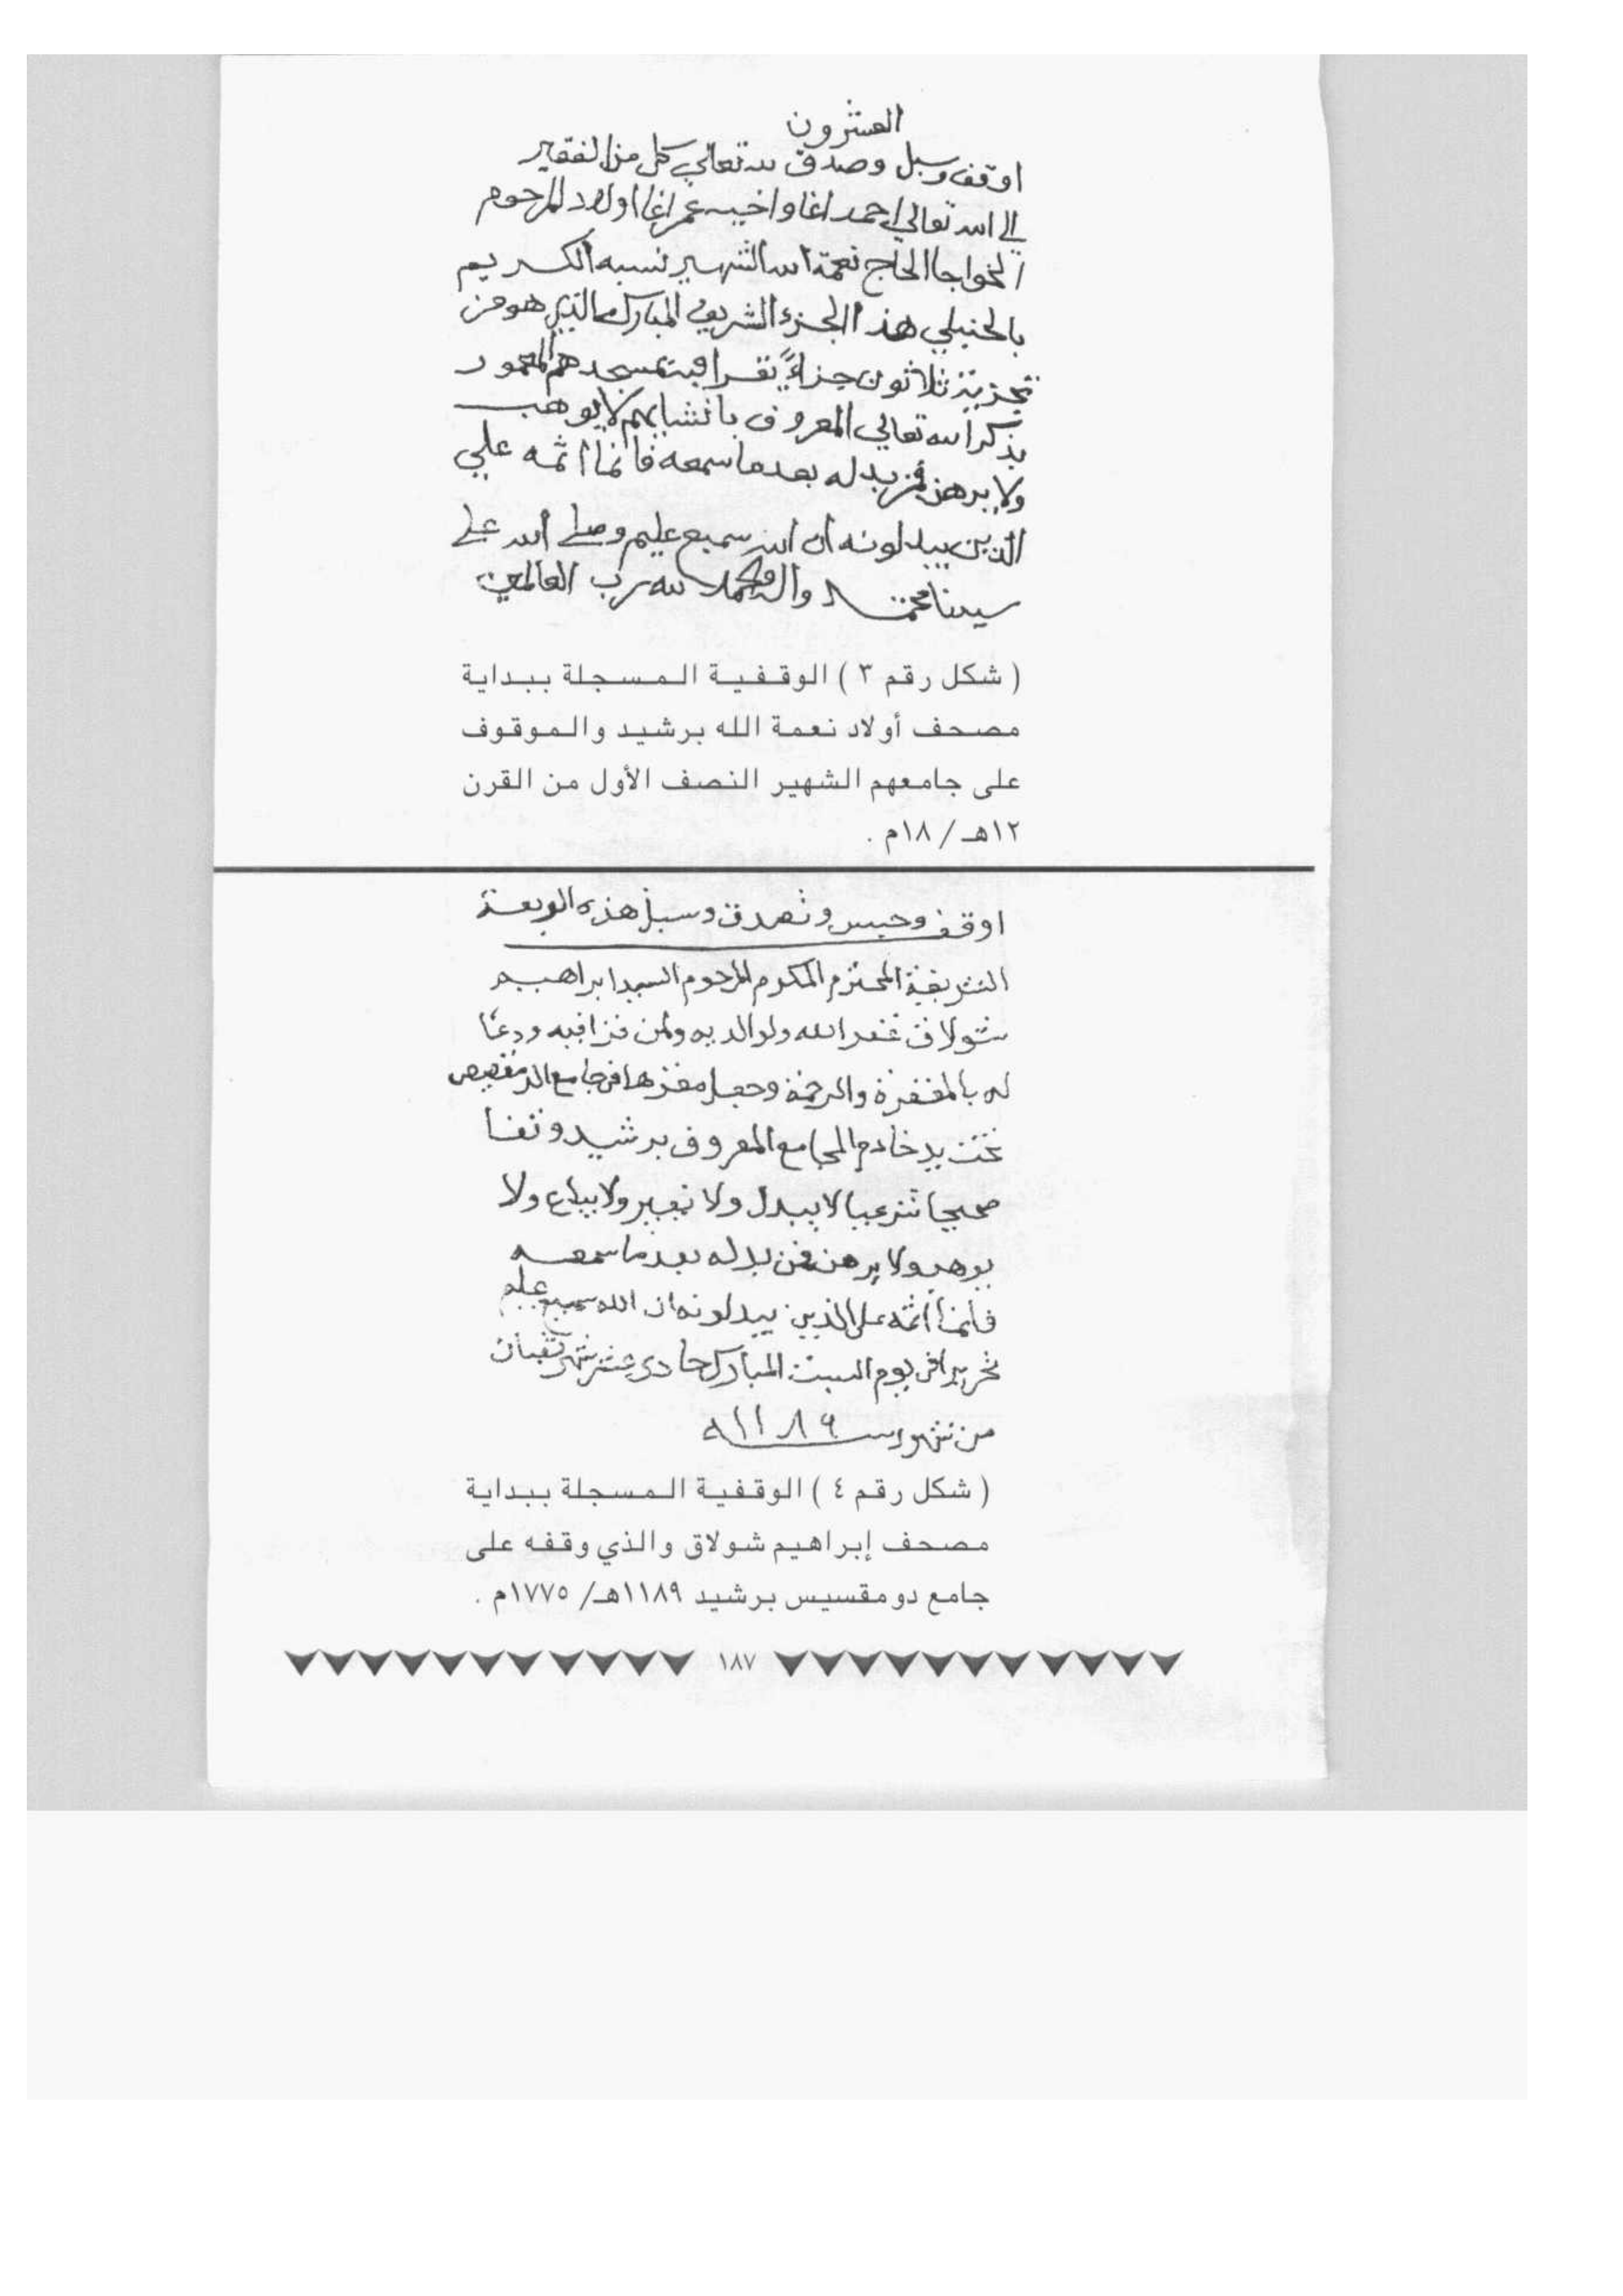 العشرون
اوقف وسبل وصدق لله تعالي كل من الفقير
الي الله تعالي احمد اغا واخيه عمر اغا اولاد المرحوم
الخواجا الحاج نعمة الله الشهير نسبه الكريم
بالحنبلي هذا الجزء الشريف المبارك الذي هو من
تجزية ثلاثون جزاءً تقرا بمسجدهم المعمور
بذكر الله تعالي المعروف بانشايهم لا يوهب
ولا يرهن فمن بدله بعد ما سمعه فانما اثمه علي
الذين يبدلونه ان الله سميع عليم وصلى الله على
سيدنا محمد واله والحمد لله رب العالمين
( شكل رقم ٣ ) الوقفية المسجلة ببداية
مصحف أولاد نعمة الله برشيد والموقوف
على جامعهم الشهير النصف الأول من القرن
١٢هـ / ١٨م .
اوقف وحبس وتصدق وسبل هذه الربعة
الشريفة المحترم المكرم المرحوم السيد ابراهيم
شولاق غفر الله ولوالديه ولمن قرا فيه ودعا
له بالمغفرة والرحمة وجعل مقرها في جامع الدمقصيص
تحت يد خادم الجامع المعروف برشيد وقفا
صحيحا شرعيا لا يبدل ولا يغير ولا يباع ولا
يوهب ولا يرهن فمن بدله بعد ما سمعه
فانما اثمه على الذين يبدلونه ان الله سميع عليم
تحريرا في يوم السبت المبارك حادي عشر شهر شعبان
من شهور سنة ١١٨٩
( شكل رقم ٤ ) الوقفية المسجلة ببداية
مصحف إبراهيم شولاق والذي وقفه على
جامع دومقسيس برشيد ١١٨٩هـ/ ١٧٧٥م .
١٨٧